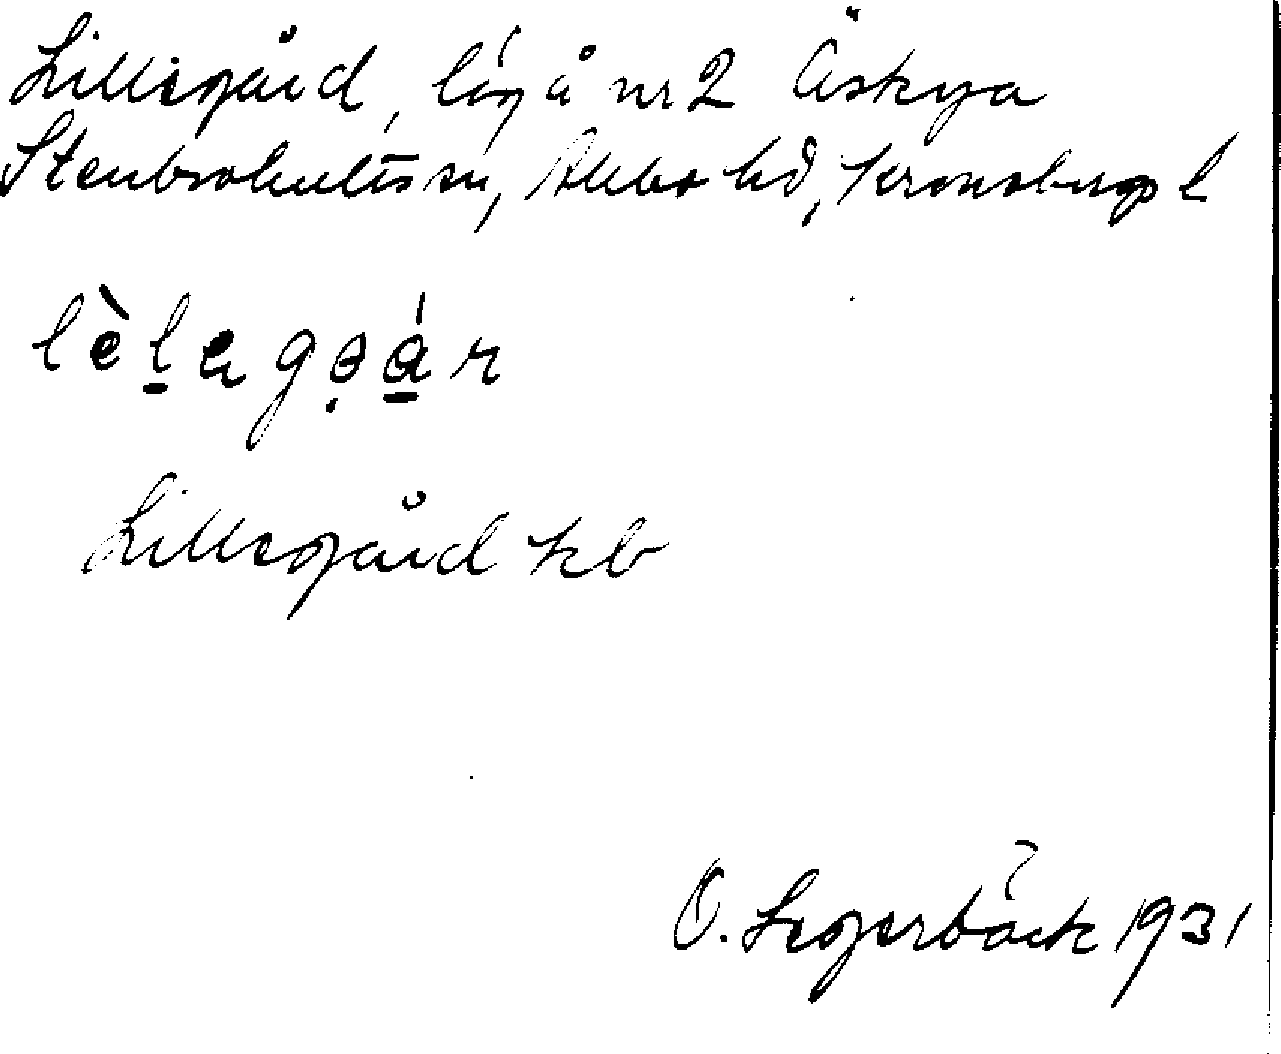 Lillegård, lög å nr 2 Äskya
Stenbrohults sn, Allbo hd, Kronobergs l
lèlagəár
Lillegård kb
O. Segerbäck 1931